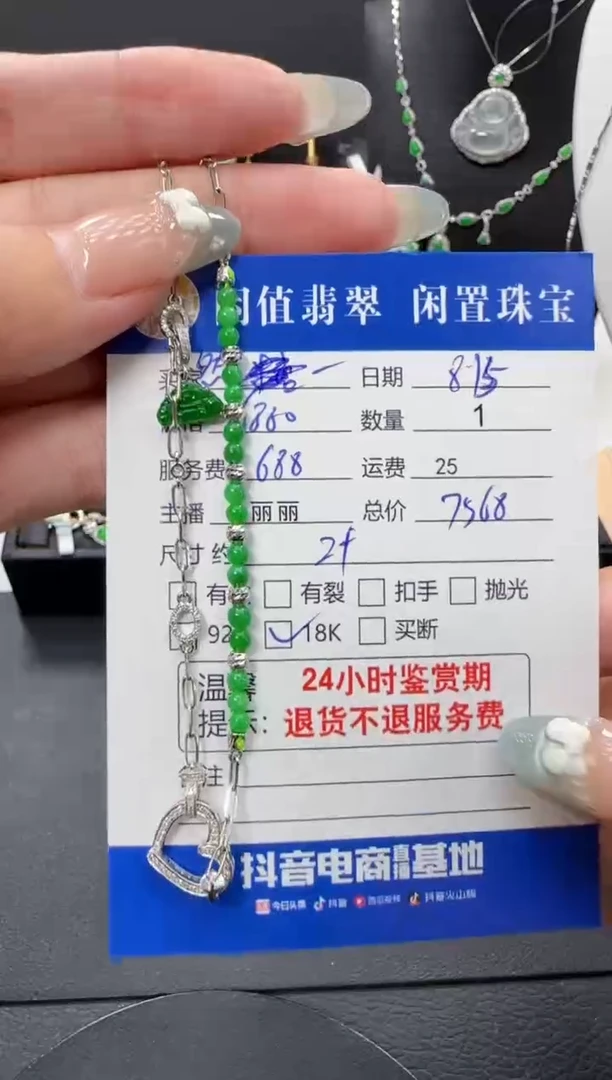 值翡翠 闲置珠宝
日期 8-15
数量 1
服务费 688 运费 25
主播 丽丽 总价 7568
尺寸 约
有 有裂 扣手 抛光
92 18K 买断
温馨 24小时鉴赏期
提示: 退货不退服务费
注
抖音电商直播基地
今日头条 抖音 抖音火山版